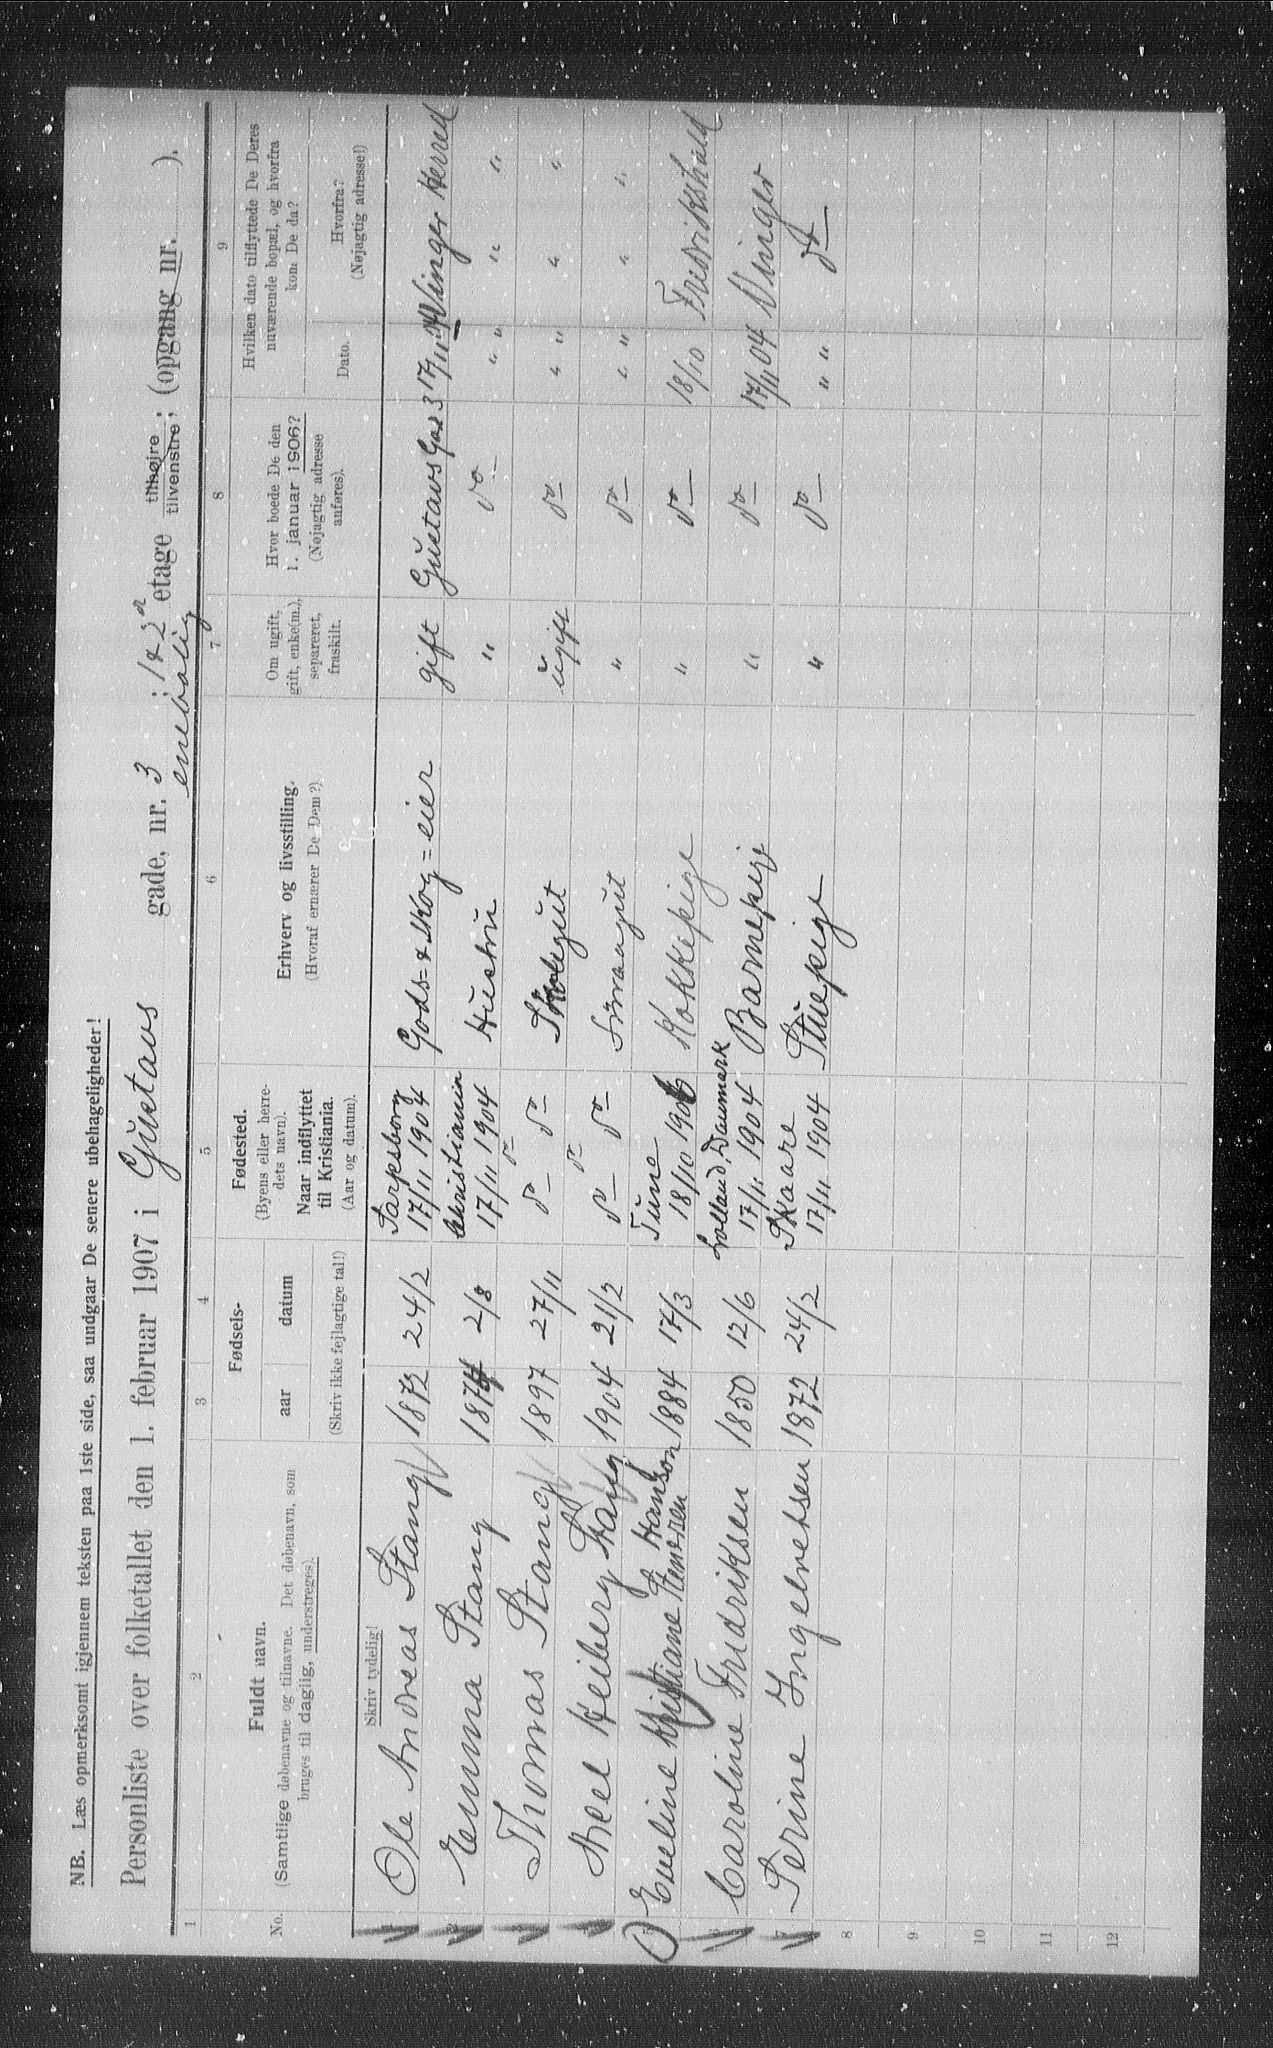 NB. Læs opmerksomt igjennem teksten paa 1ste side, saa undgaar De senere ubehageligheder!
Personliste over folketallet den 1. februar 1907 i Gustavs gade, nr. 3 ; 1 & 2 etage tilhøjre tilvenstre; (opgang nr. ).
enebolig
1 2 3 4 5 6 7 8 9
No. Fuldt navn. (Samtlige døbenavne og tilnavne. Det døbenavn, som bruges til daglig, understreges).
Fødsels- aar datum
Fødested. (Byens eller herredets navn). Naar indflyttet til Kristiania. (Aar og datum).
Erhverv og livsstilling. (Hvoraf ernærer De Dem?)
Om ugift, gift, enke(m.), separeret, fraskilt.
Hvor boede De den 1. januar 1906? (Nøjagtig adresse anføres).
Hvilken dato tilflyttede De Deres nuværende bopæl, og hvorfra kom De da?
Dato. Hvorfra? (Nøjagtig adresse!)
Skriv tydelig! (Skriv ikke fejlagtige tal!)
1 Ole Andreas Stang 1873 24/2 Sarpsborg 17/11 1904 Gods= & Skog=eier gift Gustavs Gad 3 17/11 04 Vinger Herred
2 Emma Stang 1874 2/8 Christiania 17/11 1904 Hustru " do " " " "
3 Thomas Stang 1897 27/11 do do do Skolegut ugift do " " " "
4 Axel Heiberg Stang 1904 21/2 do do do Smaagut " do " " " "
5 Eveline Kristiane Stenersen Hanson 1884 17/3 Tune 18/10 1906 Kokkepige " do 18/10 Fredrikshald
6 Caroline Fredriksen 1850 12/6 Lolland, Danmark 17/11 1904 Barnepige " do 17/11 04 Vinger
7 Perine Ingebretsen 1872 24/2 Skaare 17/11 1904 Stuepige " do " " do
8
9
10
11
12